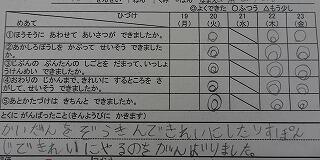 ◎よくできた ○ふつう △もう少し
ひづけ 19 20 21 22 23
めあて (月) (火) (水) (木) (金)
①ほうそうに あわせて あいさつが できましたか。
②あかしろぼうしを かぶって せいそう できましたか。
③じぶんの ぶんたんの しごとを だまって、いっしょうけんめい できましたか。
④おわりの じかんまで、きれいに するところを さがして、せいそう できましたか。
⑤あとかたづけは きちんと できましたか。
とくに がんばったこと(きんようびに かきます)
かいだんをぞうきんできれいにしたり
じできれいにやるのをがんばりました。